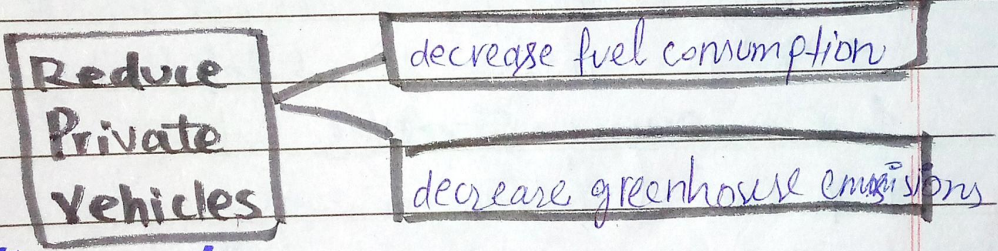 Reduce
Private
Vehicles
decrease fuel consumption
decrease greenhouse emissions